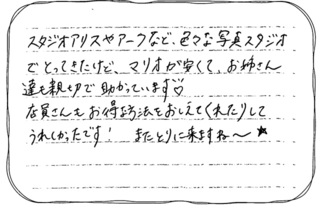 スタジオアリスやアークなど、色々な写真スタジオ
でとってきたけど、マリオが安くて、お姉さん
達も親切で助かっています♡
店員さんもお得な方法をおしえてくれたりして
うれしかったです! またとりに来ますね〜★